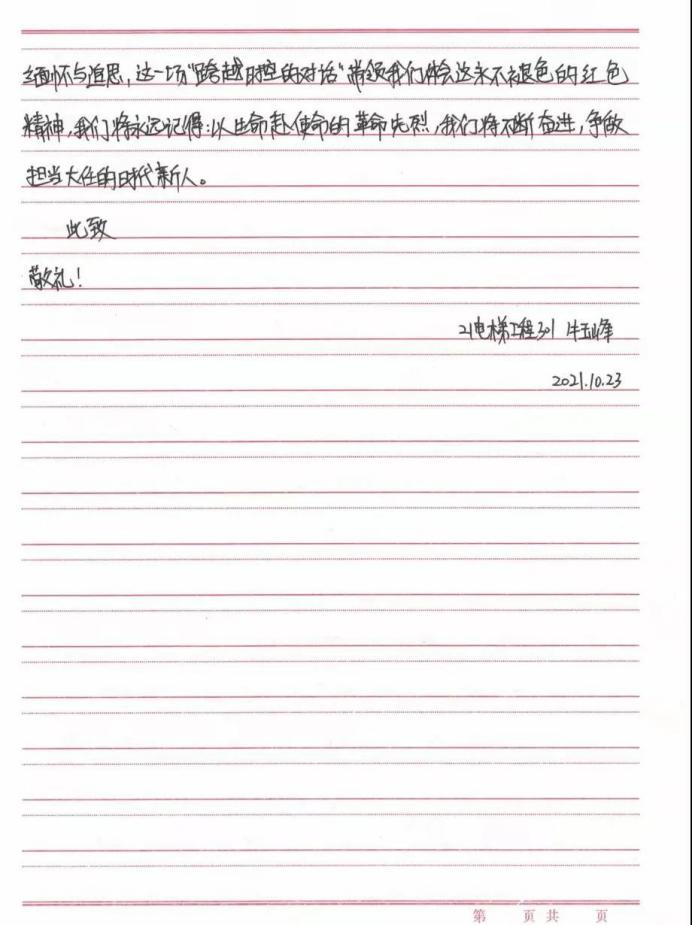 缅怀与追思,这一场"跨越时空的对话"带领我们体会这永不褪色的红色
精神,我们将永远记得:以生命赴使命的革命先烈,我们将不断奋进,争做
担当大任的时代新人。
此致
敬礼!
21电梯工程301 牛玉峰
2021.10.23
第 页 共 页